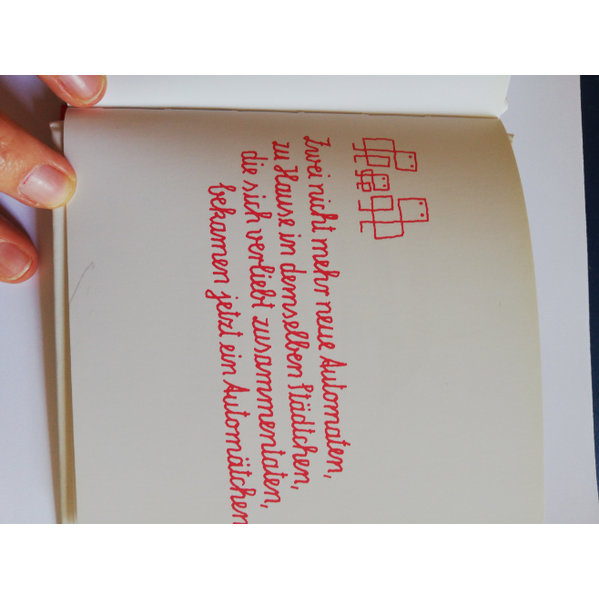 Zwei nicht mehr neue Automaten,
zu Hause in demselben Städtchen,
die sich verliebt zusammentaten,
bekamen jetzt ein Automätchen